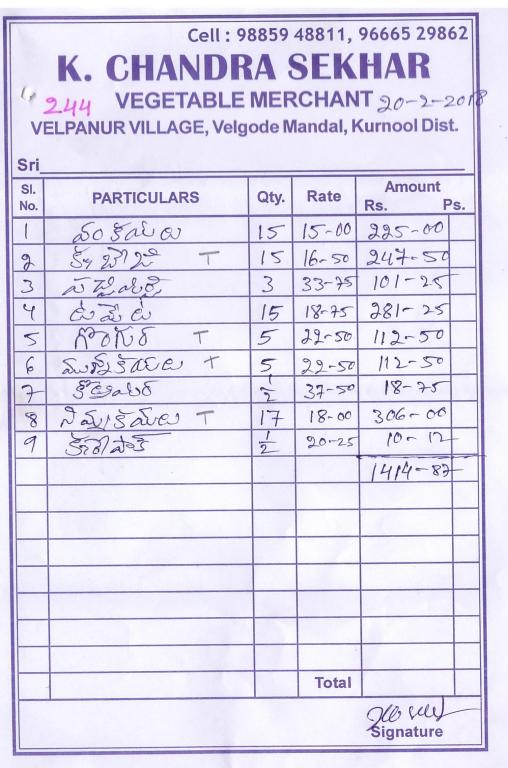 Cell : 98859 48811, 96665 29862
K. CHANDRA SEKHAR
244 VEGETABLE MERCHANT 20-2-2018
VELPANUR VILLAGE, Velgode Mandal, Kurnool Dist.
Sri
Sl. No. PARTICULARS Qty. Rate Amount Rs. Ps.
1 వంకాయలు 15 15-00 225-00
2 క్యాబేజి T 15 16-50 247-50
3 పచ్చిమిర్చి 3 33-75 101-25
4 టమేట 15 18-75 281-25
5 గొంగుర T 5 22-50 112-50
6 మునక్కాయలు T 5 22-50 112-50
7 కొత్తిమీర 1/2 37-50 18-75
8 నిమ్మకాయలు T 17 18-00 306-00
9 కరేపాక్ 1/2 20-25 10-12
1414-87
Total
Signature